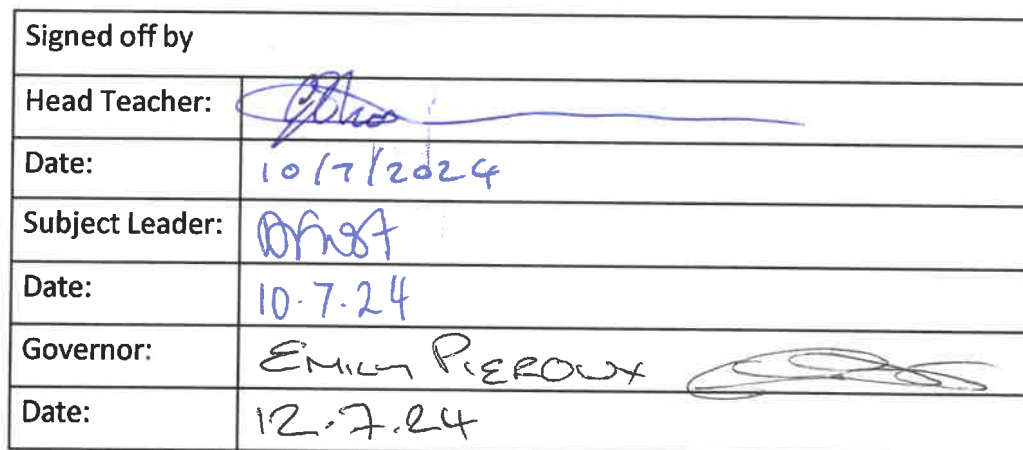 Signed off by
Head Teacher:
Date: 10/7/2024
Subject Leader:
Date: 10.7.24
Governor: EMILY PIEROUX
Date: 12.7.24